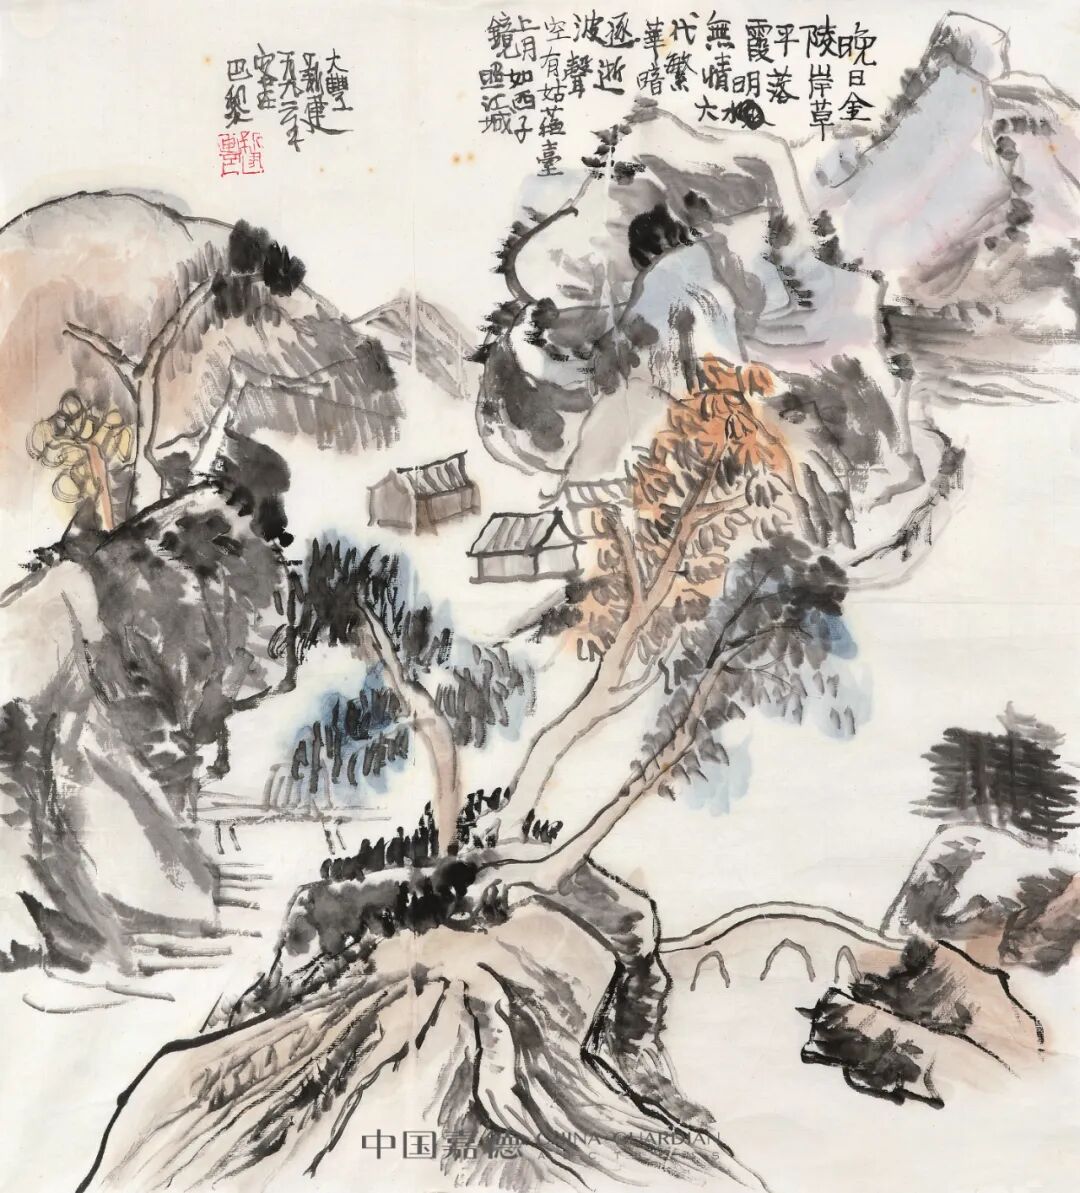 晚日金
陵岸草
平落
霞明水
無情六
代繁
華暗
逐逝
波聲
空有姑蘇臺
上月如西子
鏡照江城
大豐
新建
巴黎
中国嘉德 CHINA GUARDIAN
AUCTIONS